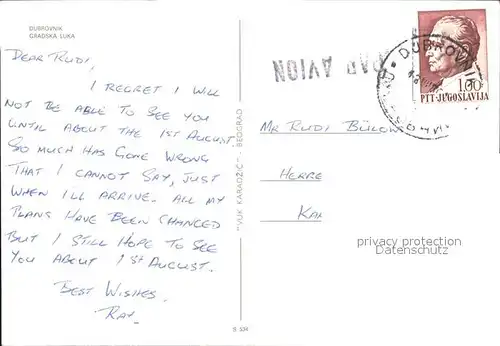 DUBROVNIK
GRADSKA LUKA
DEAR RUDI,
I REGRET I WILL
NOT BE ABLE TO SEE YOU
UNTIL ABOUT THE 1ST AUGUST.
SO MUCH HAS GONE WRONG
THAT I CANNOT SAY, JUST
WHEN I'LL ARRIVE. ALL MY
PLANS HAVE BEEN CHANGED
BUT I STILL HOPE TO SEE
YOU ABOUT 1ST AUGUST.
BEST WISHES.
RAY.
"VUK KARADŽIĆ" - BEOGRAD
S 534
PAR AVION
DUBROVNIK
1.00
PTT-JUGOSLAVIJA
MR RUDI BÜLOW
HERRE
KAR
privacy protection
Datenschutz